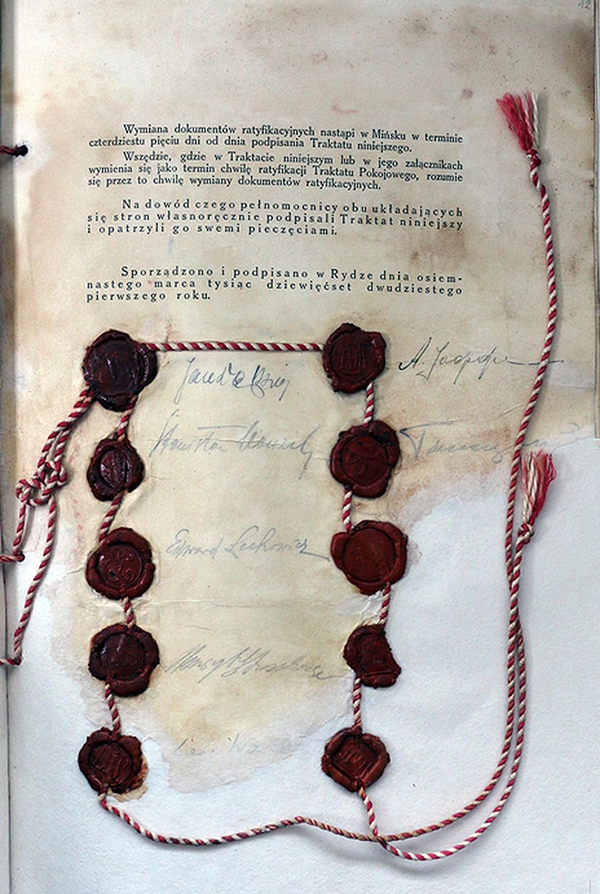 12
Wymiana dokumentów ratyfikacyjnych nastąpi w Mińsku w terminie
czterdziestu pięciu dni od dnia podpisania Traktatu niniejszego.
Wszędzie, gdzie w Traktacie niniejszym lub w jego załącznikach
wymienia się jako termin chwilę ratyfikacji Traktatu Pokojowego, rozumie
się przez to chwilę wymiany dokumentów ratyfikacyjnych.
Na dowód czego pełnomocnicy obu układających
się stron własnoręcznie podpisali Traktat niniejszy
i opatrzyli go swemi pieczęciami.
Sporządzono i podpisano w Rydze dnia osiem-
nastego marca tysiąc dziewięćset dwudziestego
pierwszego roku.
Edward Lechowicz